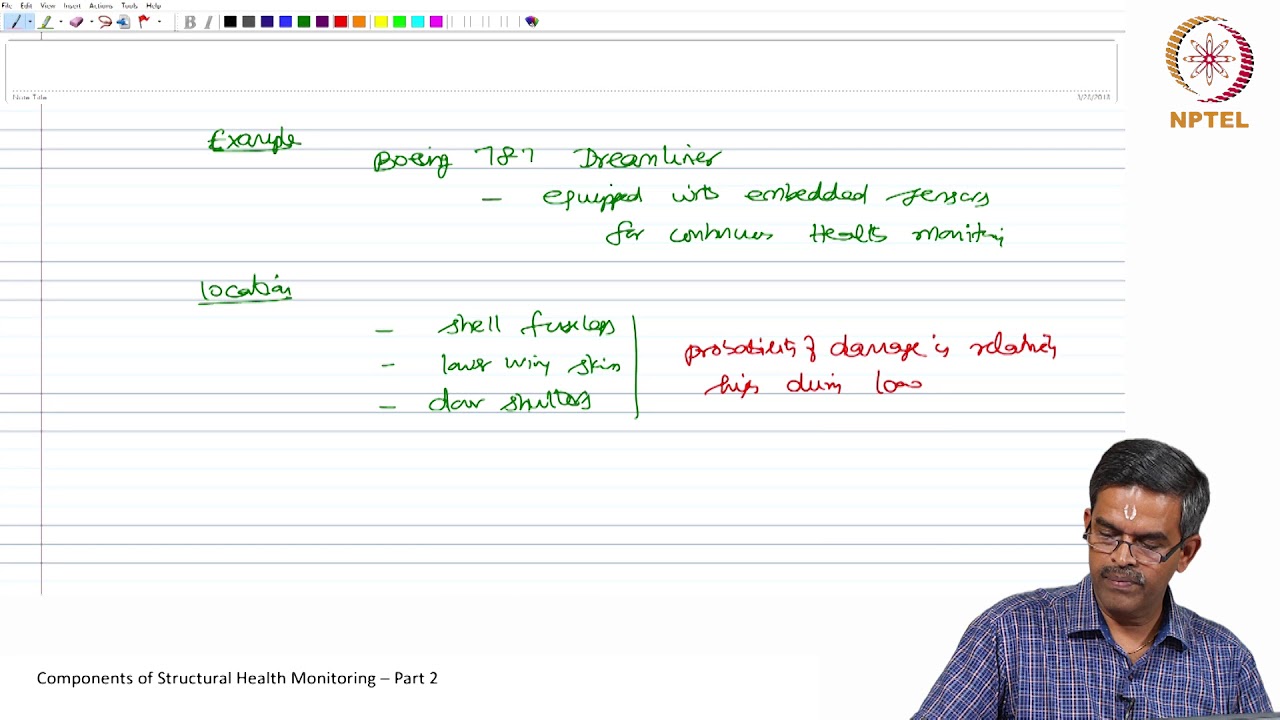 File Edit View Insert Actions Tools Help
B I
Note Title
3/28/2018
NPTEL
Example
Boeing 787 Dreamliner
— equipped with embedded sensors
for continuous Health monitoring
Location
— shell fuselage
— lower wing skin
— door
probability of damage is relatively
high during
Components of Structural Health Monitoring – Part 2